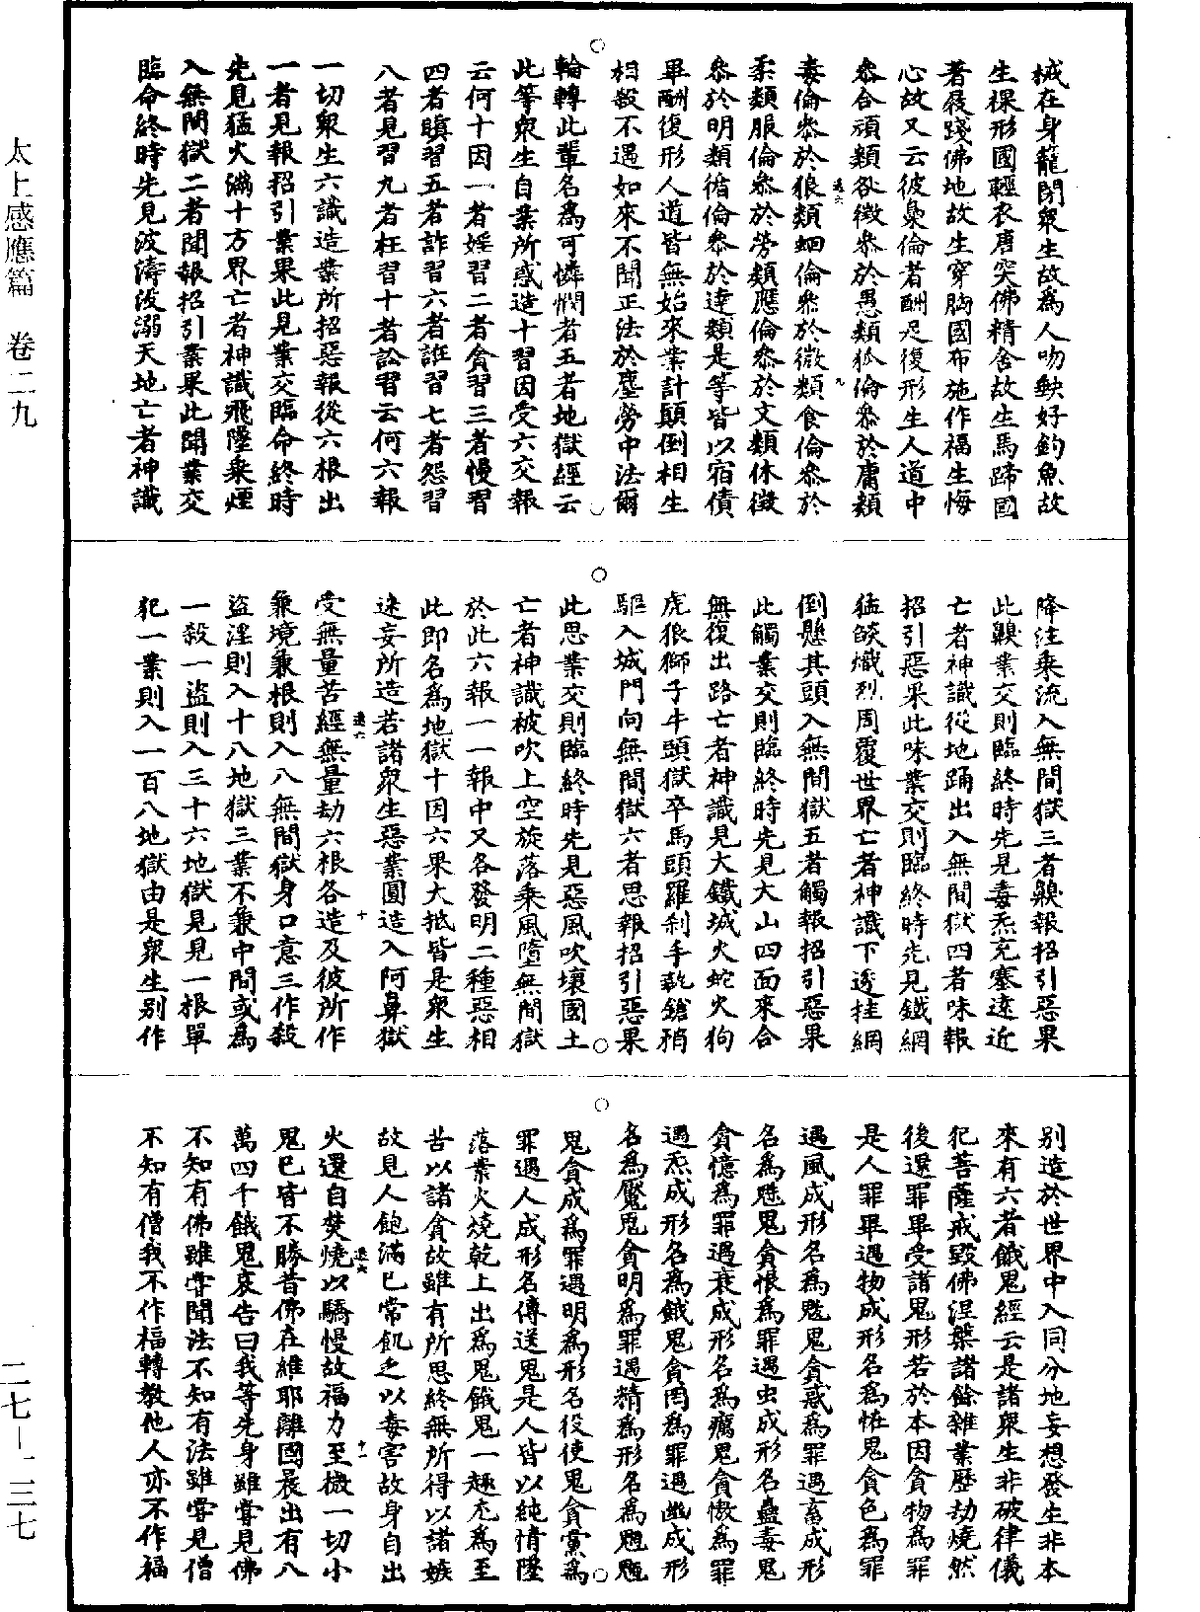 太上感應篇 卷二九
二七－二三七
械在身籠閉衆生故爲人吻缺好釣魚故
生裸形國輕衣唐突佛精舍故生馬蹄國
著屐踐佛地故生穿胸國布施作福生悔
心故又云彼梟倫者酬足復形生人道中
叅合頑類咎徵叅於愚類狐倫叅於庸類
毒倫叅於狼類蛔倫叅於微類食倫叅於
柔類服倫叅於勞類應倫叅於文類休徵
叅於明類循倫叅於達類是等皆以宿債
畢酬復形人道皆無始來業計顛倒相生
相殺不遇如來不聞正法於塵勞中法爾
輪轉此輩名爲可憐憫者五者地獄經云
此等衆生自業所惑造十習因受六交報
云何十因一者婬習二者貪習三者慢習
四者瞋習五者詐習六者誑習七者怨習
八者見習九者枉習十者訟習云何六報
一切衆生六識造業所招惡報從六根出
一者見報招引業果此見業交臨命終時
先見猛火滿十方界亡者神識飛墜乘煙
入無間獄二者聞報招引業果此聞業交
臨命終時先見波濤沒溺天地亡者神識
降注乘流入無間獄三者齅報招引惡果
此齅業交則臨終時先見毒炁充塞遠近
亡者神識從地踊出入無間獄四者味報
招引惡果此味業交則臨終時先見鐵網
猛燄熾烈周覆世界亡者神識下透挂網
倒懸其頭入無間獄五者觸報招引惡果
此觸業交則臨終時先見大山四面來合
無復出路亡者神識見大鐵城火蛇火狗
虎狼獅子牛頭獄卒馬頭羅剎手執鎗矟
驅入城門向無間獄六者思報招引惡果
此思業交則臨終時先見惡風吹壞國土
亡者神識被吹上空旋落乘風墮無間獄
於此六報一一報中又各發明二種惡相
此即名爲地獄十因六果大抵皆是衆生
迷妄所造若諸衆生惡業圓造入阿鼻獄
受無量苦經無量劫六根各造及彼所作
兼境兼根則入八無間獄身口意三作殺
盜淫則入十八地獄三業不兼中間或爲
一殺一盜則入三十六地獄見見一根單
犯一業則入一百八地獄由是衆生別作
別造於世界中入同分地妄想發生非本
來有六者餓鬼經云是諸衆生非破律儀
犯菩薩戒毀佛涅槃諸餘雜業歷劫燒然
後還罪畢受諸鬼形若於本因貪物爲罪
是人罪畢遇物成形名爲恠鬼貪色爲罪
遇風成形名爲魃鬼貪惑爲罪遇畜成形
名爲魅鬼貪恨爲罪遇虫成形名蠱毒鬼
貪憶爲罪遇衰成形名爲癘鬼貪慠爲罪
遇炁成形名爲餓鬼貪罔爲罪遇幽成形
名爲魘鬼貪明爲罪遇精爲形名爲魍魎
鬼貪成爲罪遇明爲形名役使鬼貪黨爲
罪遇人成形名傳送鬼是人皆以純情墜
落業火燒乾上出爲鬼餓鬼一趣尤爲至
苦以諸貪故雖有所思終無所得以諸嫉
故見人飽滿已常飢乏以毒害故身自出
火還自焚燒以驕慢故福力至微一切小
鬼已皆不勝昔佛在維耶離國晨出有八
萬四千餓鬼哀告曰我等先身雖嘗見佛
不知有佛雖嘗聞法不知有法雖嘗見僧
不知有僧我不作福轉教他人亦不作福